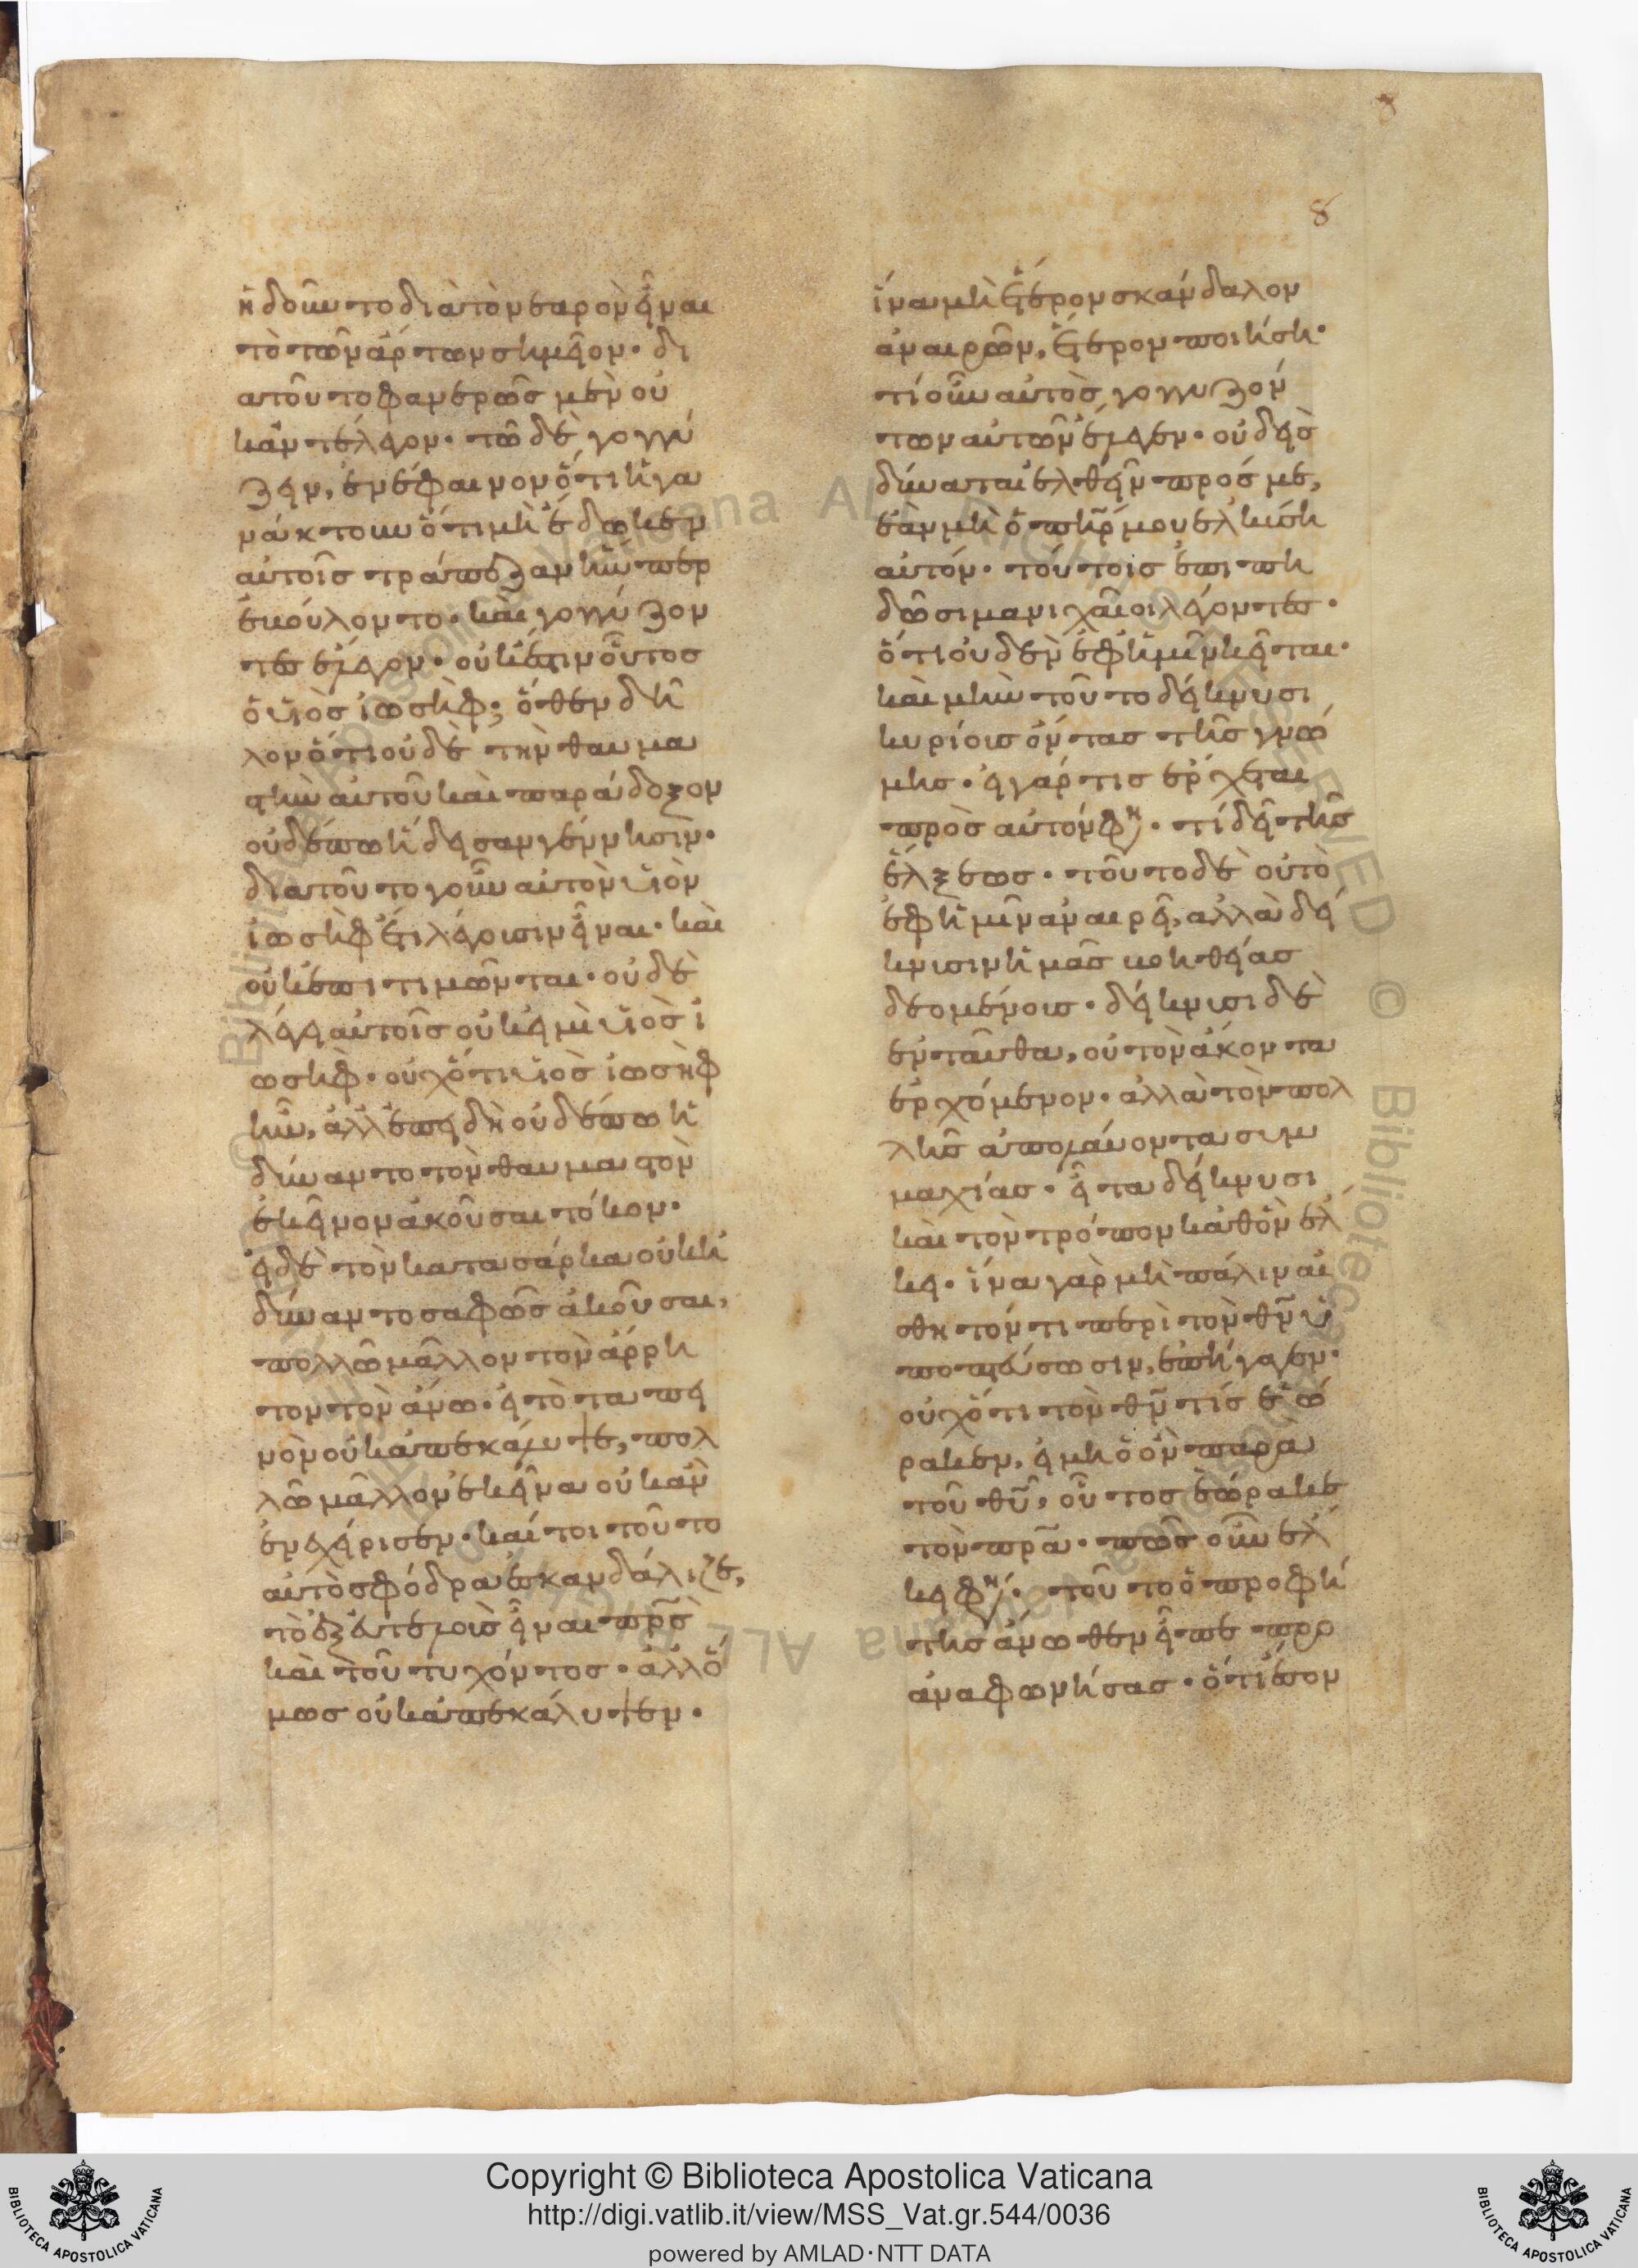 8
8
ἠδοῦντο διὰ τὸ νεαρὸν εἶναι
τὸ τῶν ἄρτων σημεῖον· δι
ατοῦτο φανερῶς μὲν οὐ
κἀντέλεγον· τῶ δὲ γογγύ
ζειν, ἐνέφαινον ὅτι ἠγα
νάκτουν ὅτι μὴ ἔδωκεν
αὐτοῖς τράπεζαν ἣν περ
ἐβούλοντο· καὶ γογγύζον
τες ἔλεγον· οὐκ ἔστιν οὗτος
ὁ υἱὸς ἰωσὴφ; ὅθεν δῆ
λον ὅτι οὐδὲ τὴν θαυμα
στὴν αὐτοῦ καὶ παράδοξον
οὐδέπω ἤδεσαν γέννησιν·
διατοῦτο γοῦν αὐτὸν υἱὸν
ἰωσὴφ ἔτι λέγουσιν εἶναι· καὶ
οὐκ ἐπιτιμῶνται· οὐδὲ
λέγει αὐτοῖς οὐκ εἰμὶ υἱὸς ἰ
ωσήφ· οὐχ ὅτι υἱὸς ἰωσὴφ
ἦν, ἀλλ' ἐπειδὴ οὐδέπω ἠ
δύναντο τὸν θαυμαστὸν
ἐκεῖνον ἀκοῦσαι τόκον·
εἰ δὲ τὸν κατα σάρκα οὐκ ἠ
δύναντο σαφῶς ἀκοῦσαι,
πολλῶ μᾶλλον τὸν ἄρρη
τον τὸν ἄνω· εἰ τὸ ταπει
νὸν οὐκ ἀπεκάλυψε, πολ
λῶ μᾶλλον ἐκεῖνα οὐκ ἂν
ἐνεχείρισεν· καίτοι τοῦτο
αὐτὸ σφόδρα ἐσκανδάλιζε,
τὸ ἐξ εὐτελοῦς εἶναι πρς
καὶ τοῦ τυχόντος· ἀλλ' ὅ
μως οὐκ ἀπεκάλυψεν·
ἵνα μὴ ἕτερον σκάνδαλον
ἀναιρῶν, ἕτερον ποιήση·
τί οὖν αὐτὸς γογγυζόν
των αὐτῶν ἔλεγεν· οὐδεὶς
δύναται ἐλθεῖν πρός με,
ἐὰν μὴ ὁ πηρ μου ἑλκύση
αὐτόν· τούτοις ἐπιπη
δῶσι μανιχαῖοι λέγοντες·
ὅτι οὐδὲν ἐφ' ἡμῖν κεῖται·
καὶ μὴν τοῦτο δείκνυσι
κυρίους ὄντας τῆς γνώ
μης· εἰ γάρ τις ἔρχεται
πρὸς αὐτόν φη· τί δεῖ τῆς
ἕλξεως· τοῦτο δὲ οὐ τὸ
ἐφ' ἡμῖν ἀναιρεῖ, ἀλλὰ δεί
κνυσιν ἡμᾶς βοηθείας
δεομένους· δείκνυσι δὲ
ἐνταῦθα, οὐ τὸν ἄκοντα
ἐρχόμενον· ἀλλὰ τὸν πολ
λῆς ἀπολαύοντα συμ
μαχίας· εἶτα δείκνυσι
καὶ τὸν τρόπον καθ' ὃν ἕλ
κει· ἵνα γὰρ μὴ πάλιν αἰ
σθητόν τι περὶ τὸν θν ὑ
ποπτεύσωσιν, ἐπήγαγεν·
οὐχ ὅτι τὸν θν τίς ἑώ
ρακεν, εἰ μὴ ὁ ὢν παρα
τοῦ θυ, οὗτος ἑώρακε
τὸν πρα· πῶς οὖν ἕλ
κει φη· τοῦτο ὁ προφή
της ἄνωθεν εἶπε προ
αναφωνήσας· ὅτι ἔσον
Copyright © Biblioteca Apostolica Vaticana
http://digi.vatlib.it/view/MSS_Vat.gr.544/0036
powered by AMLAD·NTT DATA
BIBLIOTECA APOSTOLICA VATICANA
BIBLIOTECA APOSTOLICA VATICANA